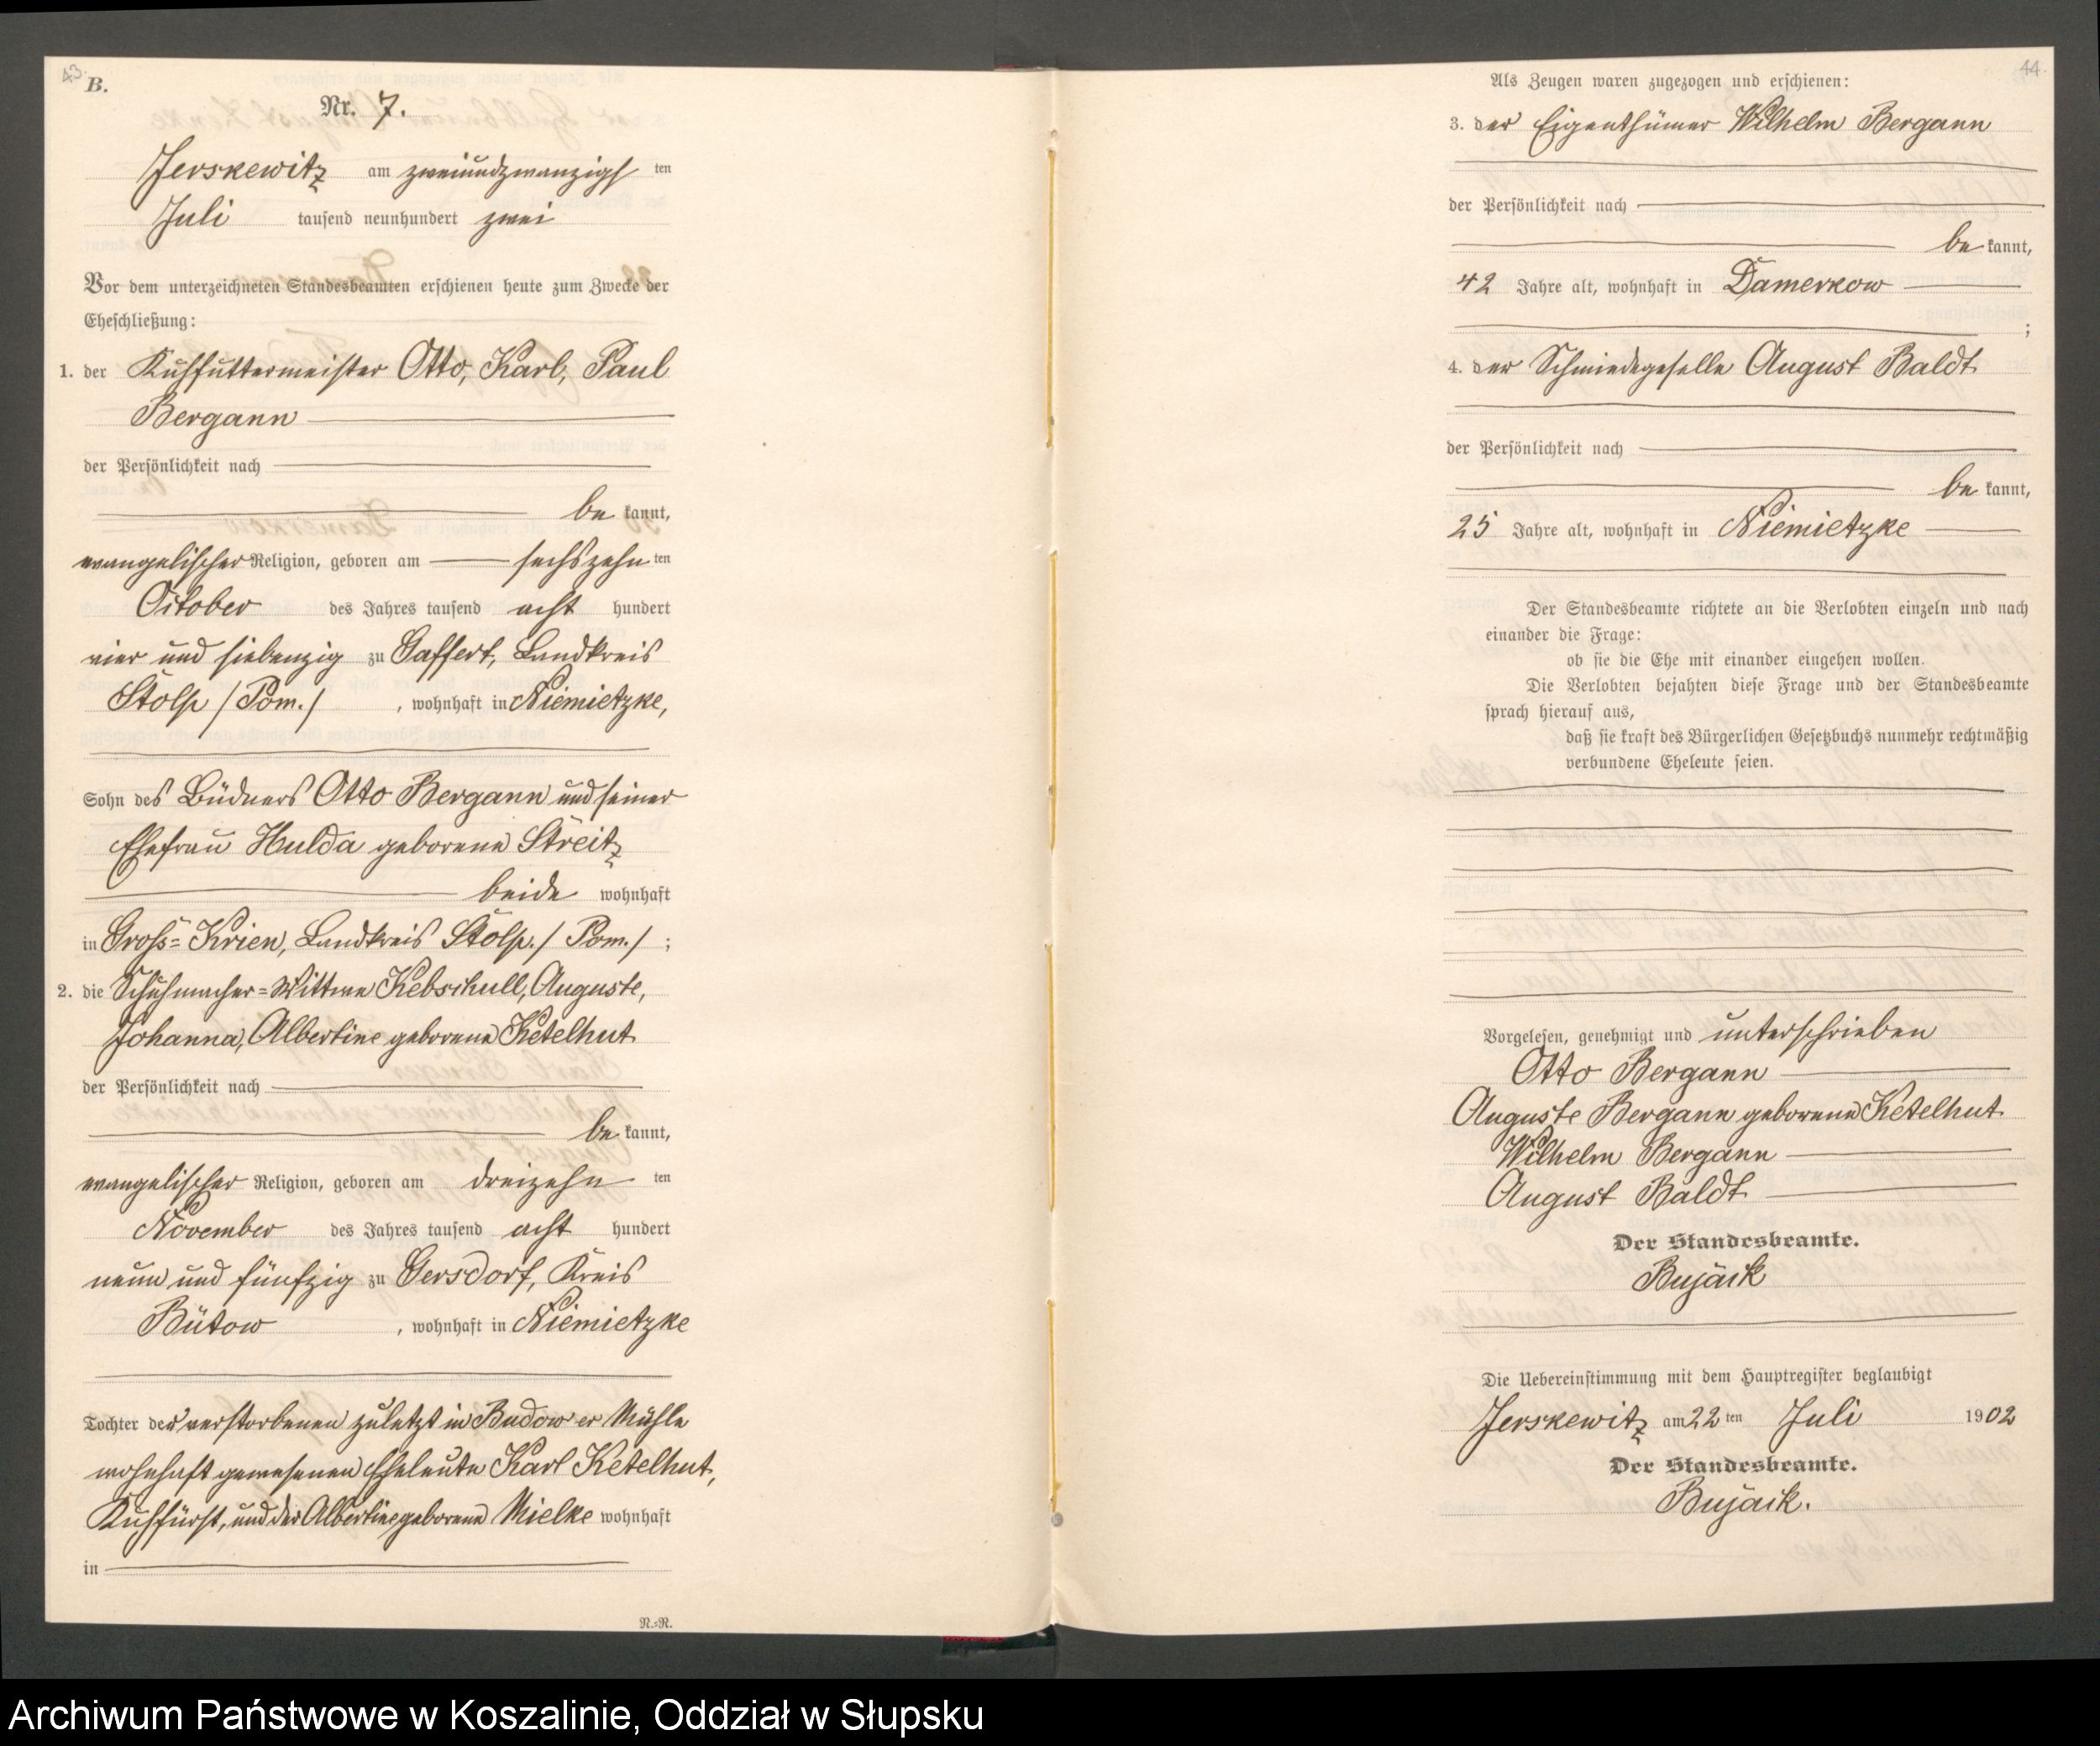 43.
B.
Nr. 7.
Jerskewitz am zweiundzwanzigsten
Juli tausend neunhundert zwei
Vor dem unterzeichneten Standesbeamten erschienen heute zum Zwecke der
Eheschließung:
1. der Kuhfuttermeister Otto, Karl, Paul
Bergann
der Persönlichkeit nach
bekannt,
evangelischer Religion, geboren am sechszehnten
October des Jahres tausend acht hundert
vier und siebenzig zu Gaffert, Landkreis
Stolp /Pom./, wohnhaft in Niemietzke,
Sohn des Büdners Otto Bergann und seiner
Ehefrau Hulda geborene Streitz
beide wohnhaft
in Gross-Krien, Landkreis Stolp./ Pom./;
2. die Schuhmacher-Wittwe Kebschull, Auguste,
Johanna, Albertine geborene Ketelhut
der Persönlichkeit nach
bekannt,
evangelischer Religion, geboren am dreizehnten
November des Jahres tausend acht hundert
neun und fünfzig zu Gersdorf, Kreis
Bütow, wohnhaft in Niemietzke
Tochter der verstorbenen zuletzt in Budow'er Mühle
wohnhaft gewesenen Eheleute Karl Ketelhut,
Kuhfürst, und der Albertine geborene Mielke wohnhaft
in
N.-R.
44.
Als Zeugen waren zugezogen und erschienen:
3. der Eigenthümer Wilhelm Bergann
der Persönlichkeit nach
bekannt,
42 Jahre alt, wohnhaft in Damerkow
;
4. der Schmiedegeselle August Baldt
der Persönlichkeit nach
bekannt,
25 Jahre alt, wohnhaft in Niemietzke
Der Standesbeamte richtete an die Verlobten einzeln und nach
einander die Frage:
ob sie die Ehe mit einander eingehen wollen.
Die Verlobten bejahten diese Frage und der Standesbeamte
sprach hierauf aus,
daß sie kraft des Bürgerlichen Gesetzbuchs nunmehr rechtmäßig
verbundene Eheleute seien.
Vorgelesen, genehmigt und unterschrieben
Otto Bergann
Auguste Bergann geborene Ketelhut
Wilhelm Bergann
August Baldt
Der Standesbeamte.
Bujack
Die Uebereinstimmung mit dem Hauptregister beglaubigt
Jerskewitz am 22ten Juli 1902
Der Standesbeamte.
Bujack.
Archiwum Państwowe w Koszalinie, Oddział w Słupsku